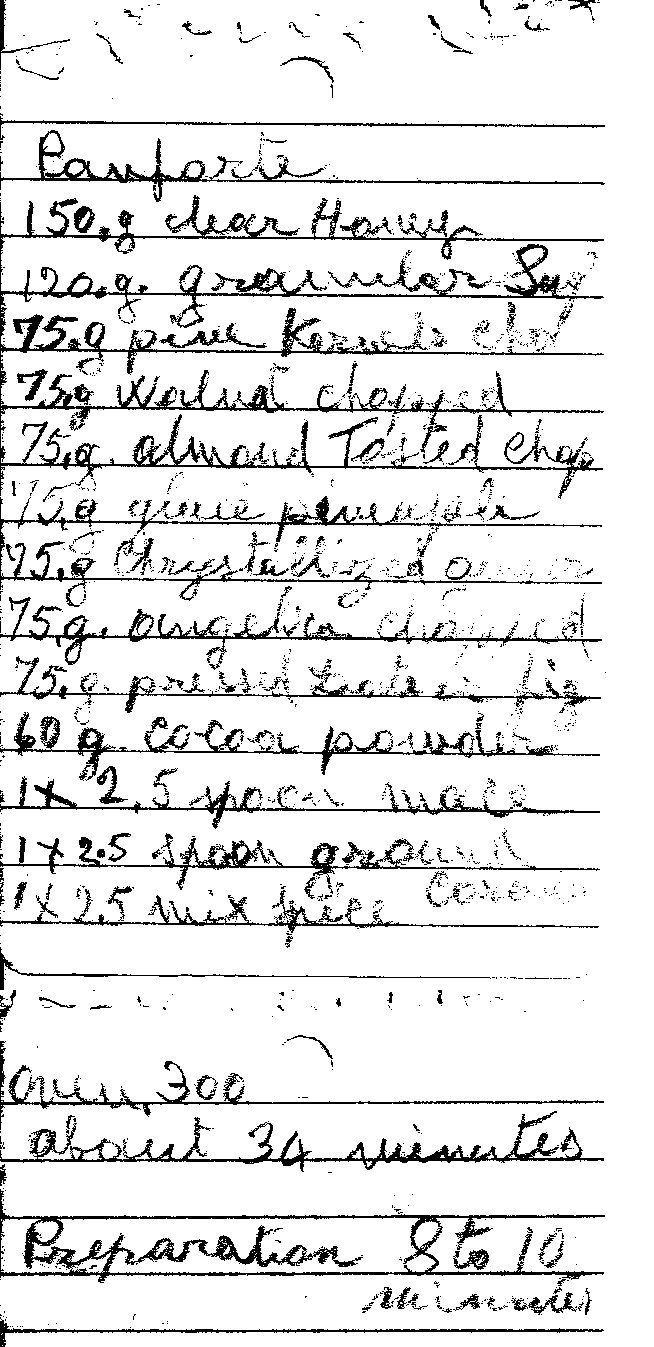 Panforte
150.g clear Honey
120.g. granular Sug
75.g pine Kernels cho
75.g Walnut chopped
75.g. almond Tosted chop
75.g glace pineapple
75.g Chrystallized
75.g. angelica chopped
75.g. pressed fig
60 g. cocoa powder
1x 2,5 spoon mace
1x2.5 spoon ground
1x2.5 mix spice
Oven, 300
about 34 minutes
Preparation 8 to 10
minutes